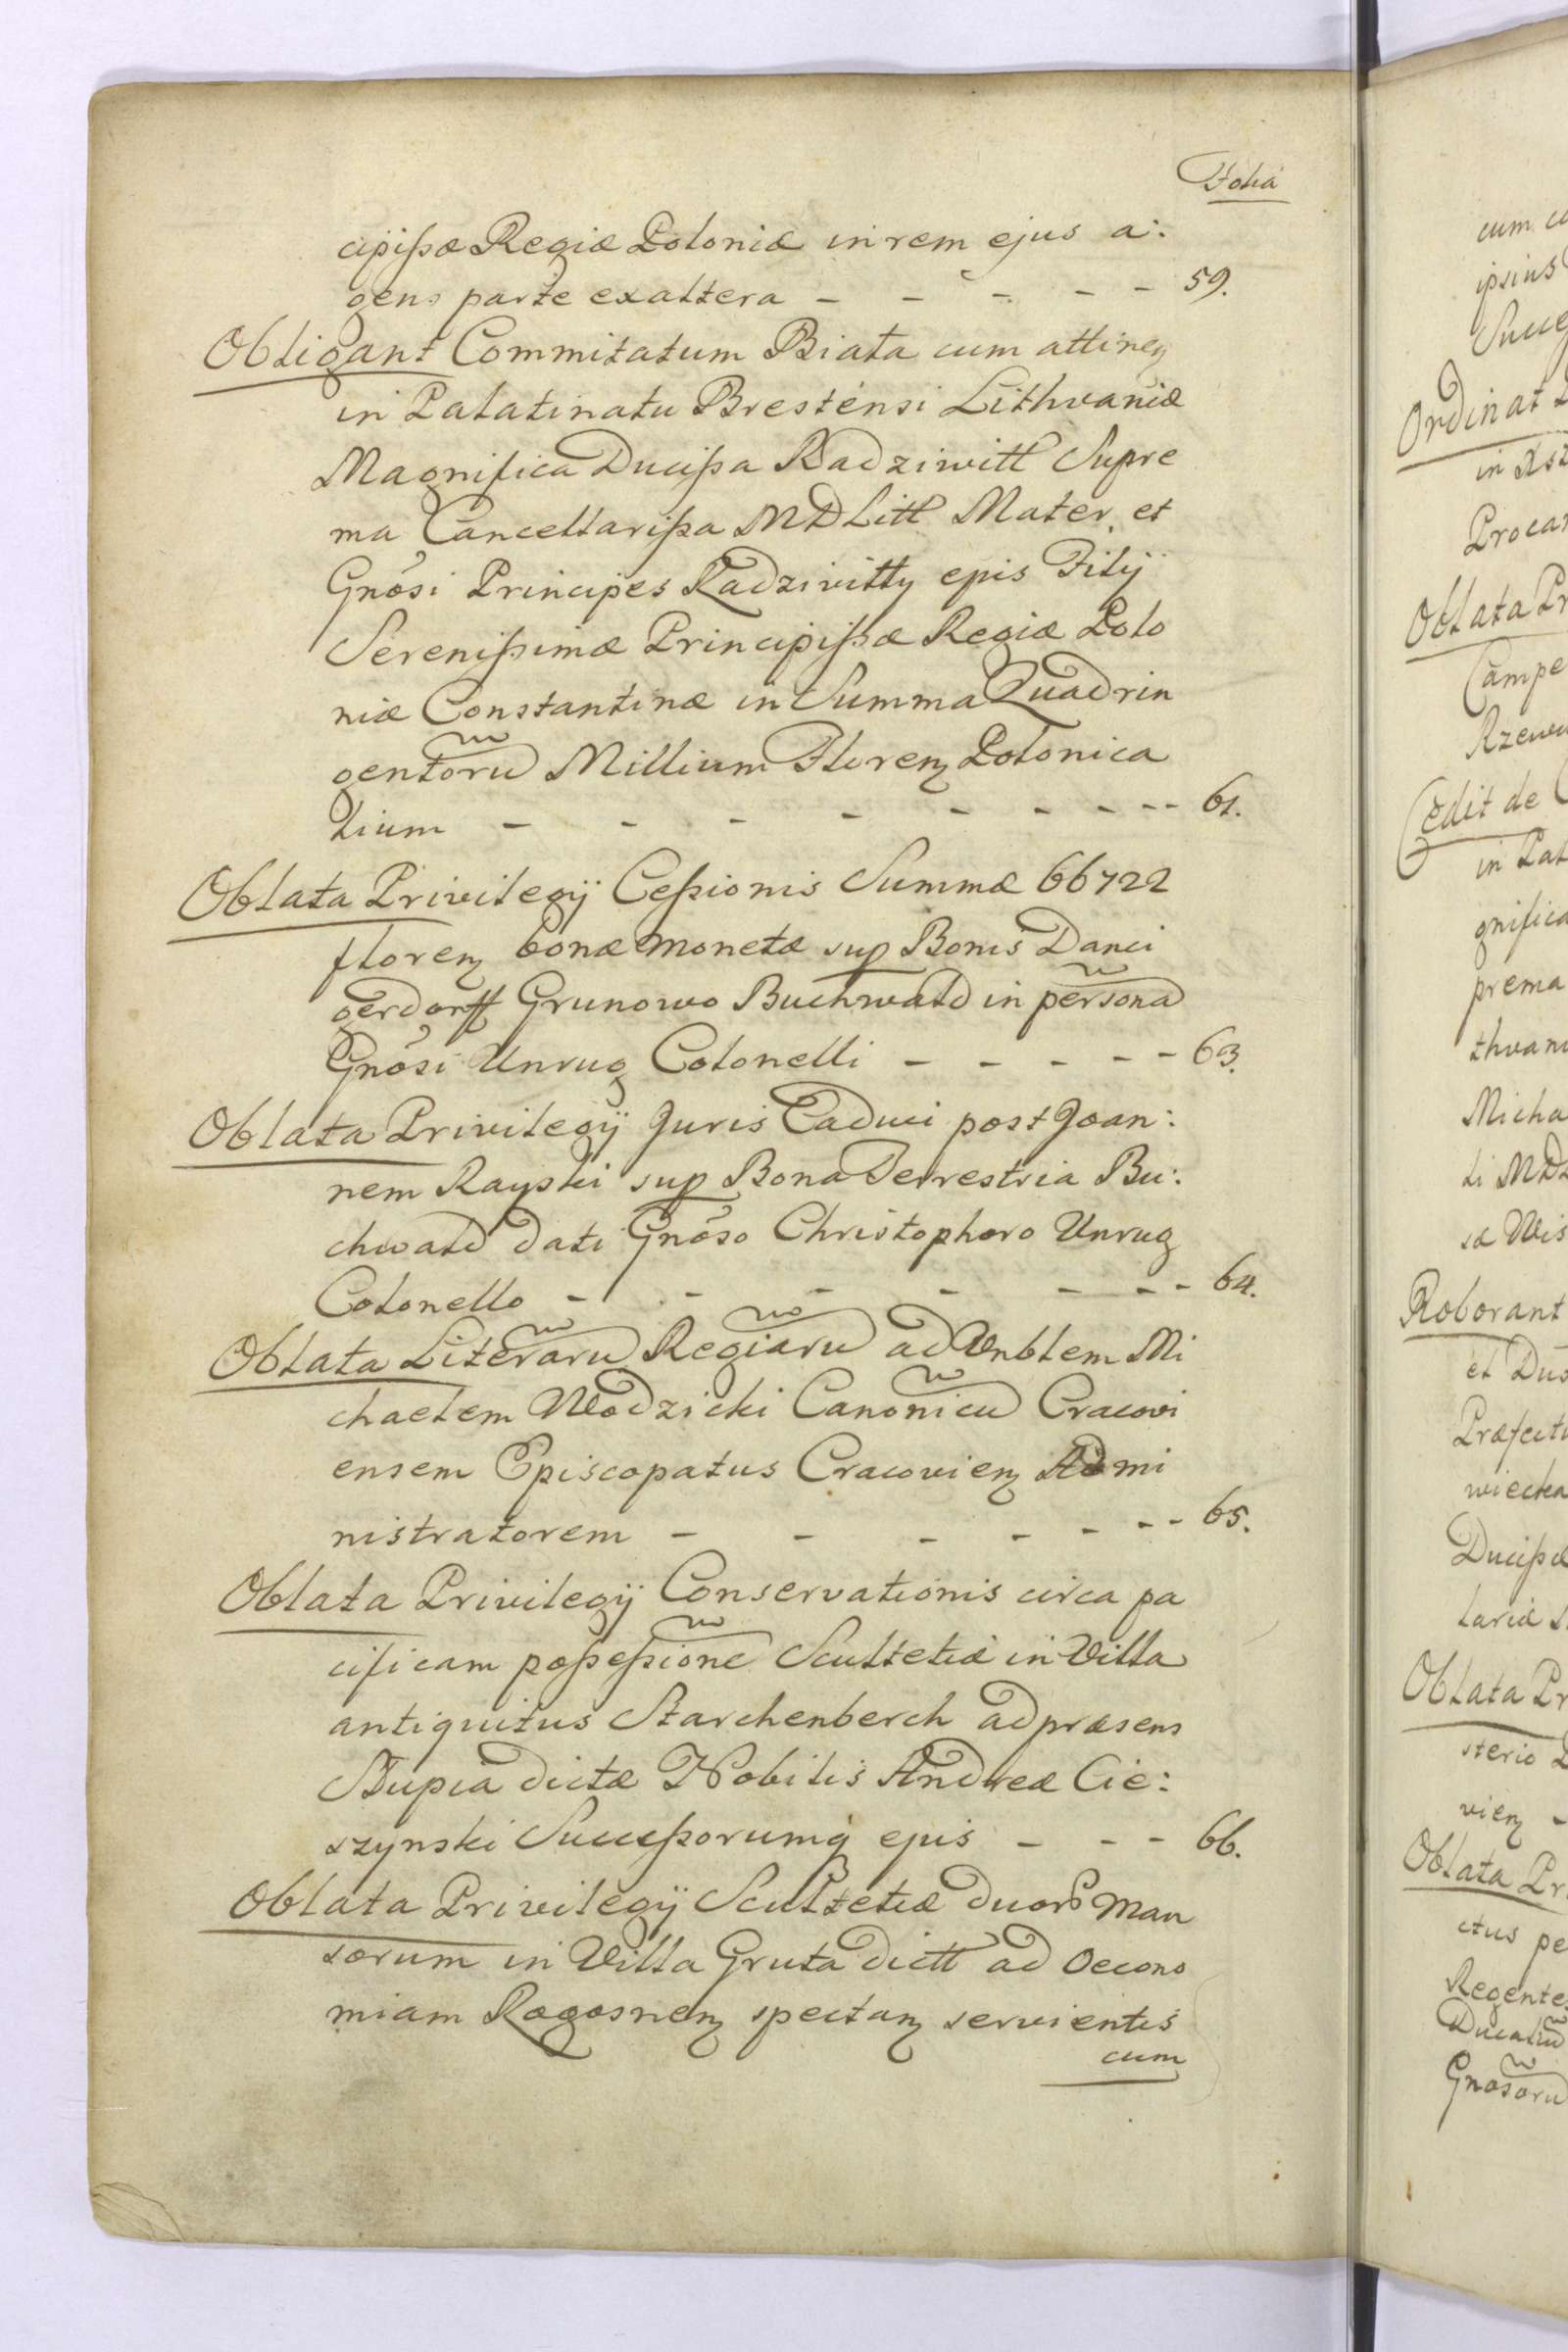 Folia
cipißæ Regiæ Poloniæ in rem ejus a:
gens parte exaltera - - - - - 59.
Obligant Commitatum Biała cum attinen
in Palatinatu Brestensi Lithvaniæ
Magnifica Ducißa Radziwiłł Supre
ma Cancellarißa MDLitt Mater, et
Gnosi Principes Radziwiłły ejus Filij
Serenißimæ Principißæ Regiæ Polo
niæ Constantinæ in Summa Quadrin
gentoru Millium Floren Polonica
lium - - - - - - - - 61.
Oblata Privilegij Ceßionis Summæ 66722
floren bonæ monetæ sup Bonis Danci
gerdorff Grunowo Buchwald in persona
Gnosi Unrug Colonelli - - - - - 63.
Oblata Privilegij Juris Caduci post Joan:
nem Rayski sup Bona Terrestria Bu:
chwald dati Gnoso Christophoro Unrug
Colonello - - - - - - - 64.
Oblata Literaru Regiaru ad Vnblem Mi
chaelem Wodzicki Canonicu Cracovi
ensem Episcopatus Cracovien Admi
nistratorem - - - - - - - 65.
Oblata Privilegij Conservationis circa pa
cificam poßeßione Scultetiæ in Villa
antiquitus Starchenberch ad præsens
Słupia dictæ Nobilis Andreæ Cie:
szynski Succeßorumq ejus - - - 66.
Oblata Privilegij Scultetiæ duor Man
sorum in Villa Gruta dict ad Oecono
miam Rogosnen spectan servientis
cum
cum
ipsius
Ordinat
Procan
Oblata Pr
Campe
Rzewu
Cedit de
in Pal
gnifica
prema
thvani
Micha
li MDL
sa Wis
Roborant
et Dus
Præfecti
wiecka
Ducißæ
lariæ S
Oblata Pr
sterio
vien -
Oblata Pr
ctus pe
Regente
Ducatu
Gnosoru